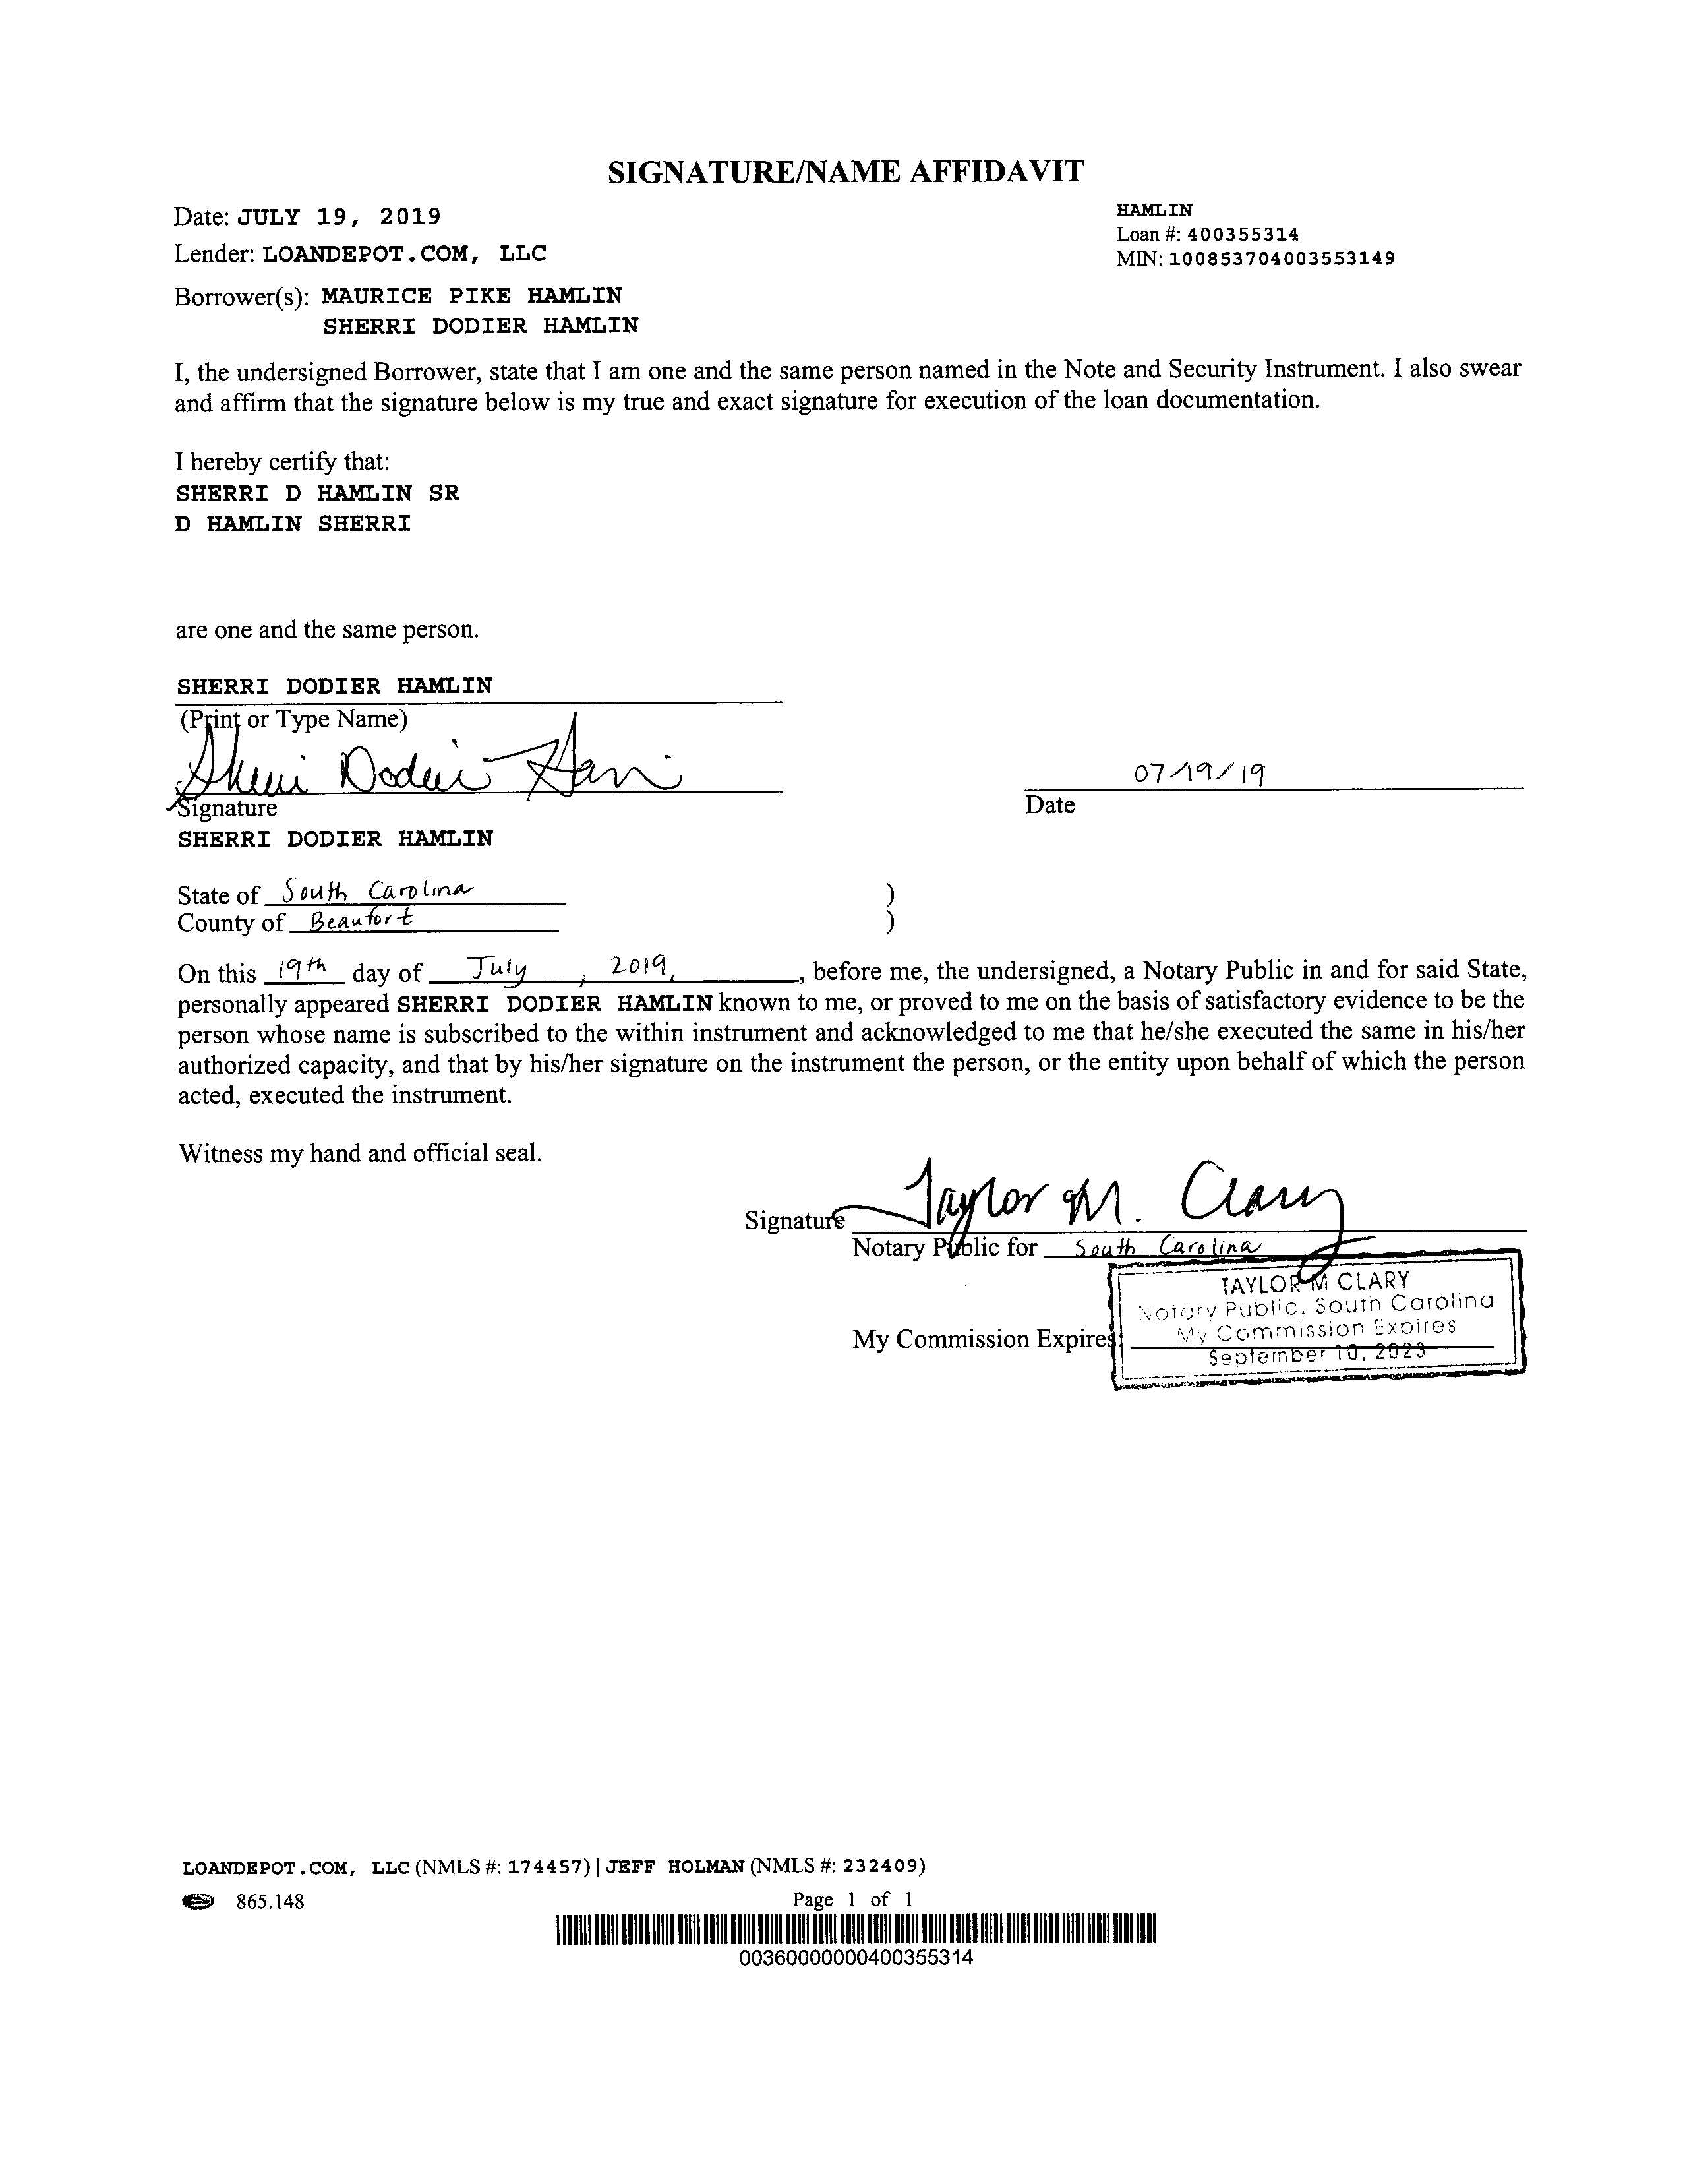 SIGNATURE/NAME AFFIDAVIT
Date: JULY 19, 2019
HAMLIN
Loan #: 400355314
MIN: 100853704003553149
Lender: LOANDEPOT.COM, LLC
Borrower(s): MAURICE PIKE HAMLIN
SHERRI DODIER HAMLIN
I, the undersigned Borrower, state that I am one and the same person named in the Note and Security Instrument. I also swear
and affirm that the signature below is my true and exact signature for execution of the loan documentation.
I hereby certify that:
SHERRI D HAMLIN SR
D HAMLIN SHERRI
are one and the same person.
SHERRI DODIER HAMLIN
(Print or Type Name)
Sherri Dodier Ham
07/19/19
Signature
Date
SHERRI DODIER HAMLIN
State of South Carolina )
County of Beaufort )
On this 19th day of July, 2019, , before me, the undersigned, a Notary Public in and for said State,
personally appeared SHERRI DODIER HAMLIN known to me, or proved to me on the basis of satisfactory evidence to be the
person whose name is subscribed to the within instrument and acknowledged to me that he/she executed the same in his/her
authorized capacity, and that by his/her signature on the instrument the person, or the entity upon behalf of which the person
acted, executed the instrument.
Witness my hand and official seal.
Signature Taylor M. Clary
Notary Public for South Carolina
TAYLOR M CLARY
Notary Public, South Carolina
My Commission Expires
September 10, 2023
My Commission Expires:
LOANDEPOT.COM, LLC (NMLS #: 174457) | JEFF HOLMAN (NMLS #: 232409)
865.148
Page 1 of 1
00360000000400355314